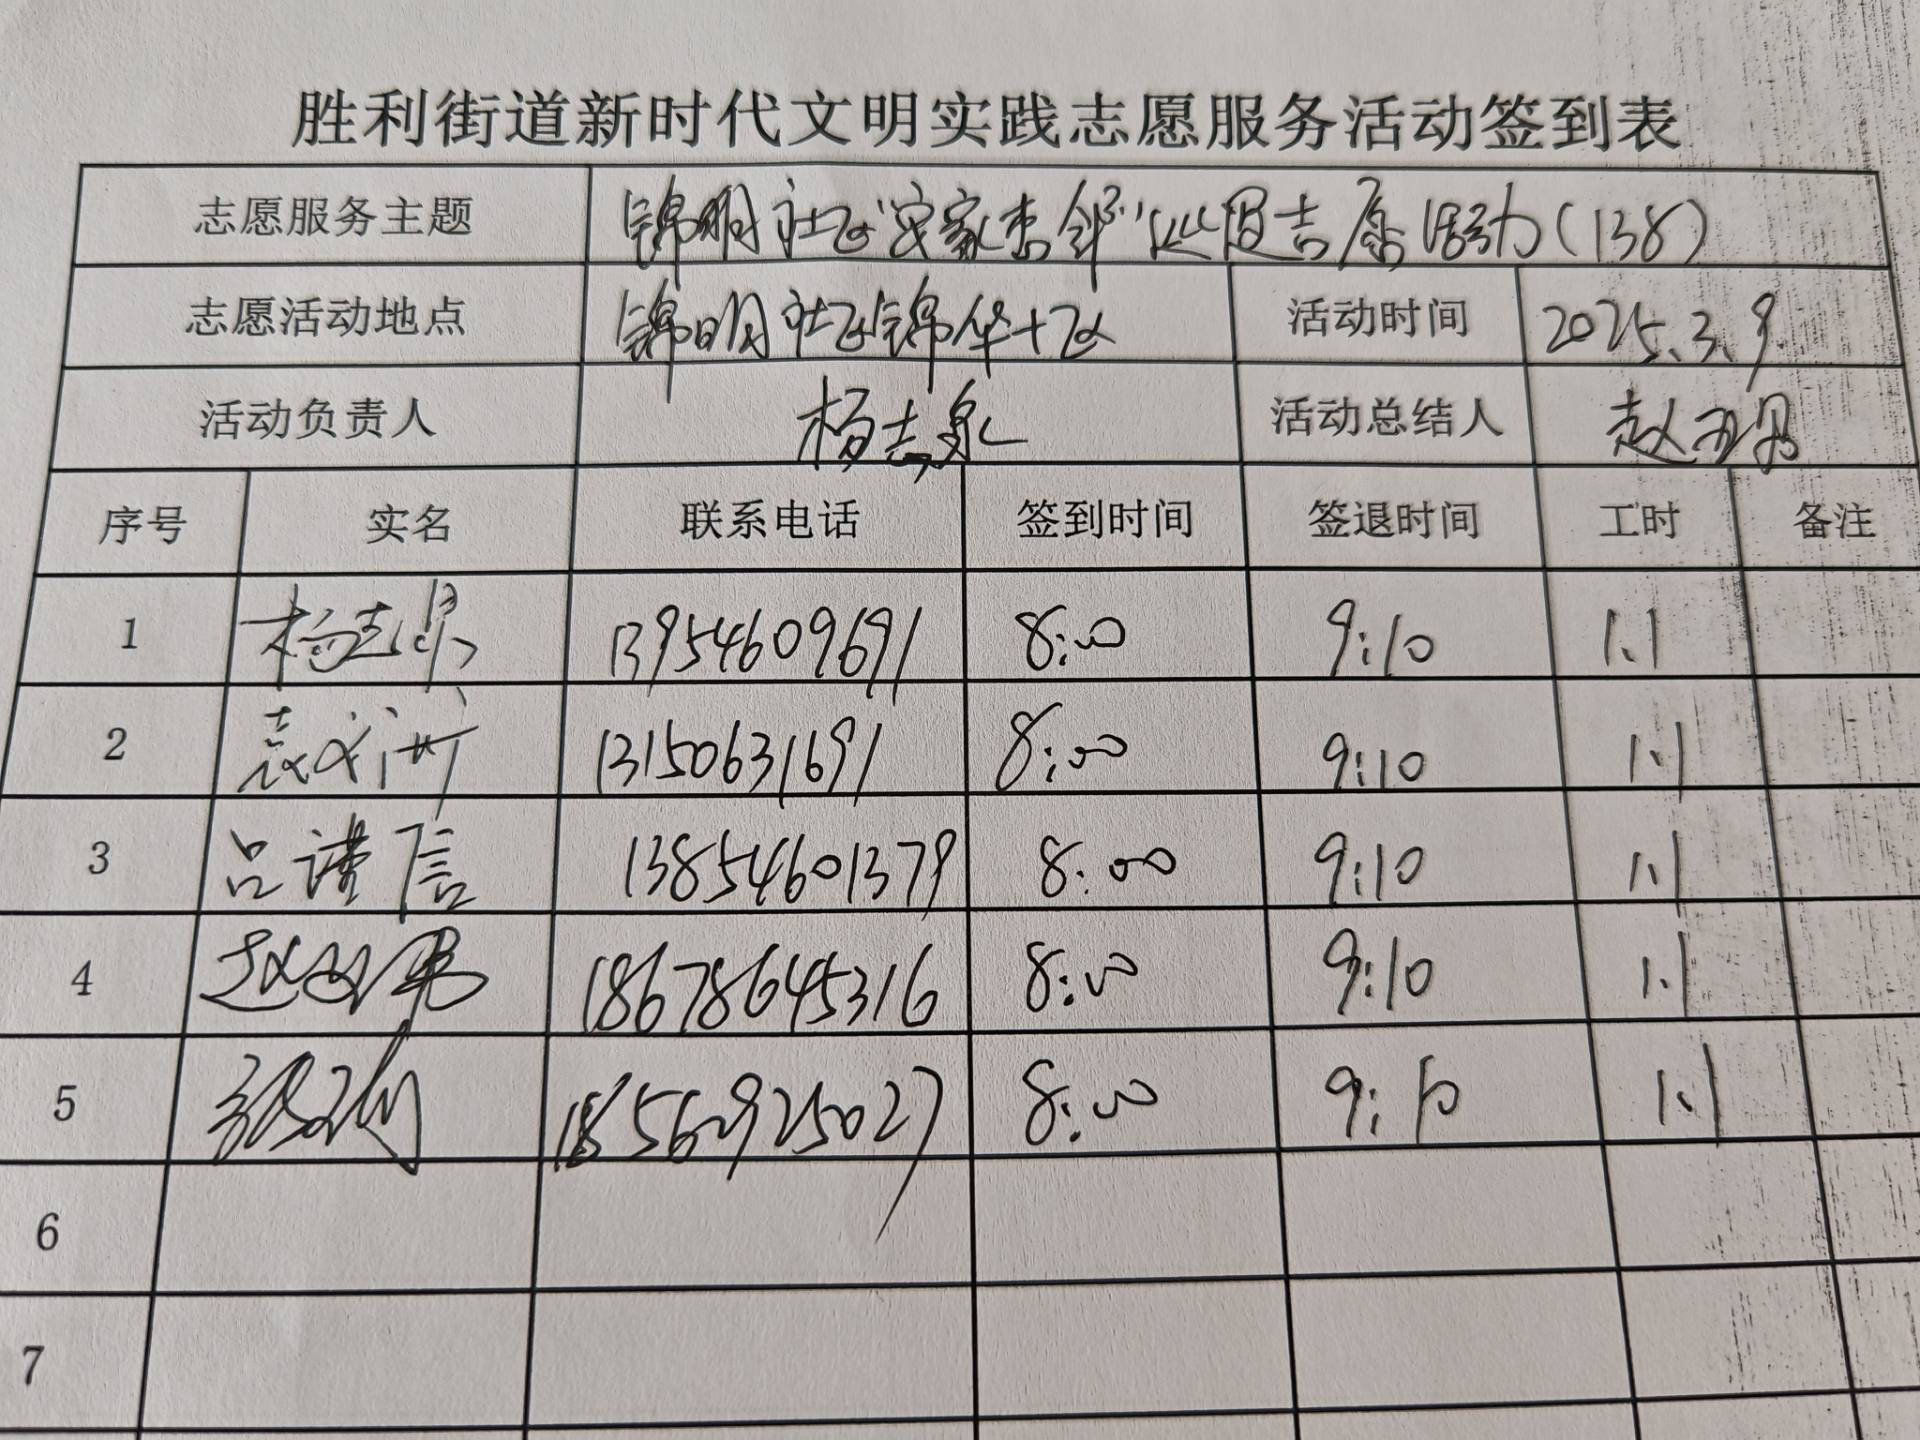 胜利街道新时代文明实践志愿服务活动签到表
志愿服务主题 锦明社区"安家杏邻"巡逻 活动(138)
志愿活动地点 锦明社区锦华十区 活动时间 2025.3.9
活动负责人 杨志泉 活动总结人 赵
序号 实名 联系电话 签到时间 签退时间 工时 备注
1 杨志泉 13954609691 8:00 9:10 1.1
2 13150631691 8:00 9:10 1.1
3 吕谨信 13854601379 8:00 9:10 1.1
4 赵 18678645316 8:00 9:10 1.1
5 18560925027 8:00 9:10 1.1
6
7